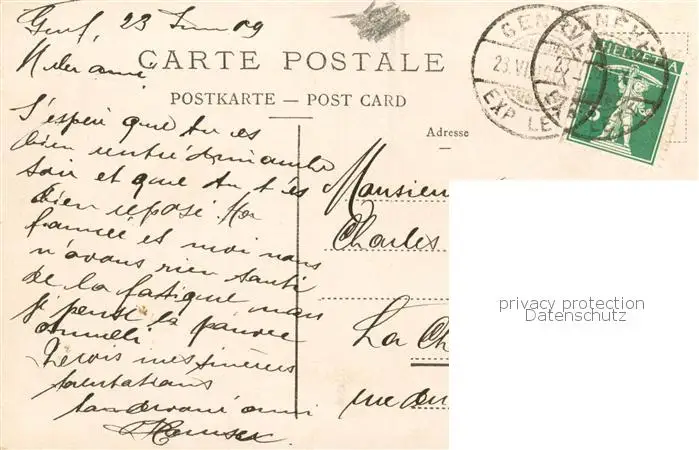 Genf, 23 Juin 09
CARTE POSTALE
POSTKARTE — POST CARD
GENÈVE
23.VI
EXP. LE
HELVETIA
5
Adresse
J'espère que tu es
bien rentré dimanche
soir et que tu t'es
bien reposé. Ma
fiancée et moi nous
n'avons rien senti
de la fatigue mais
je pense la pauvre
Reçois mes sincères
salutations
ton dévoué ami
Monsieur
Charles
La Ch
rue du
privacy protection
Datenschutz